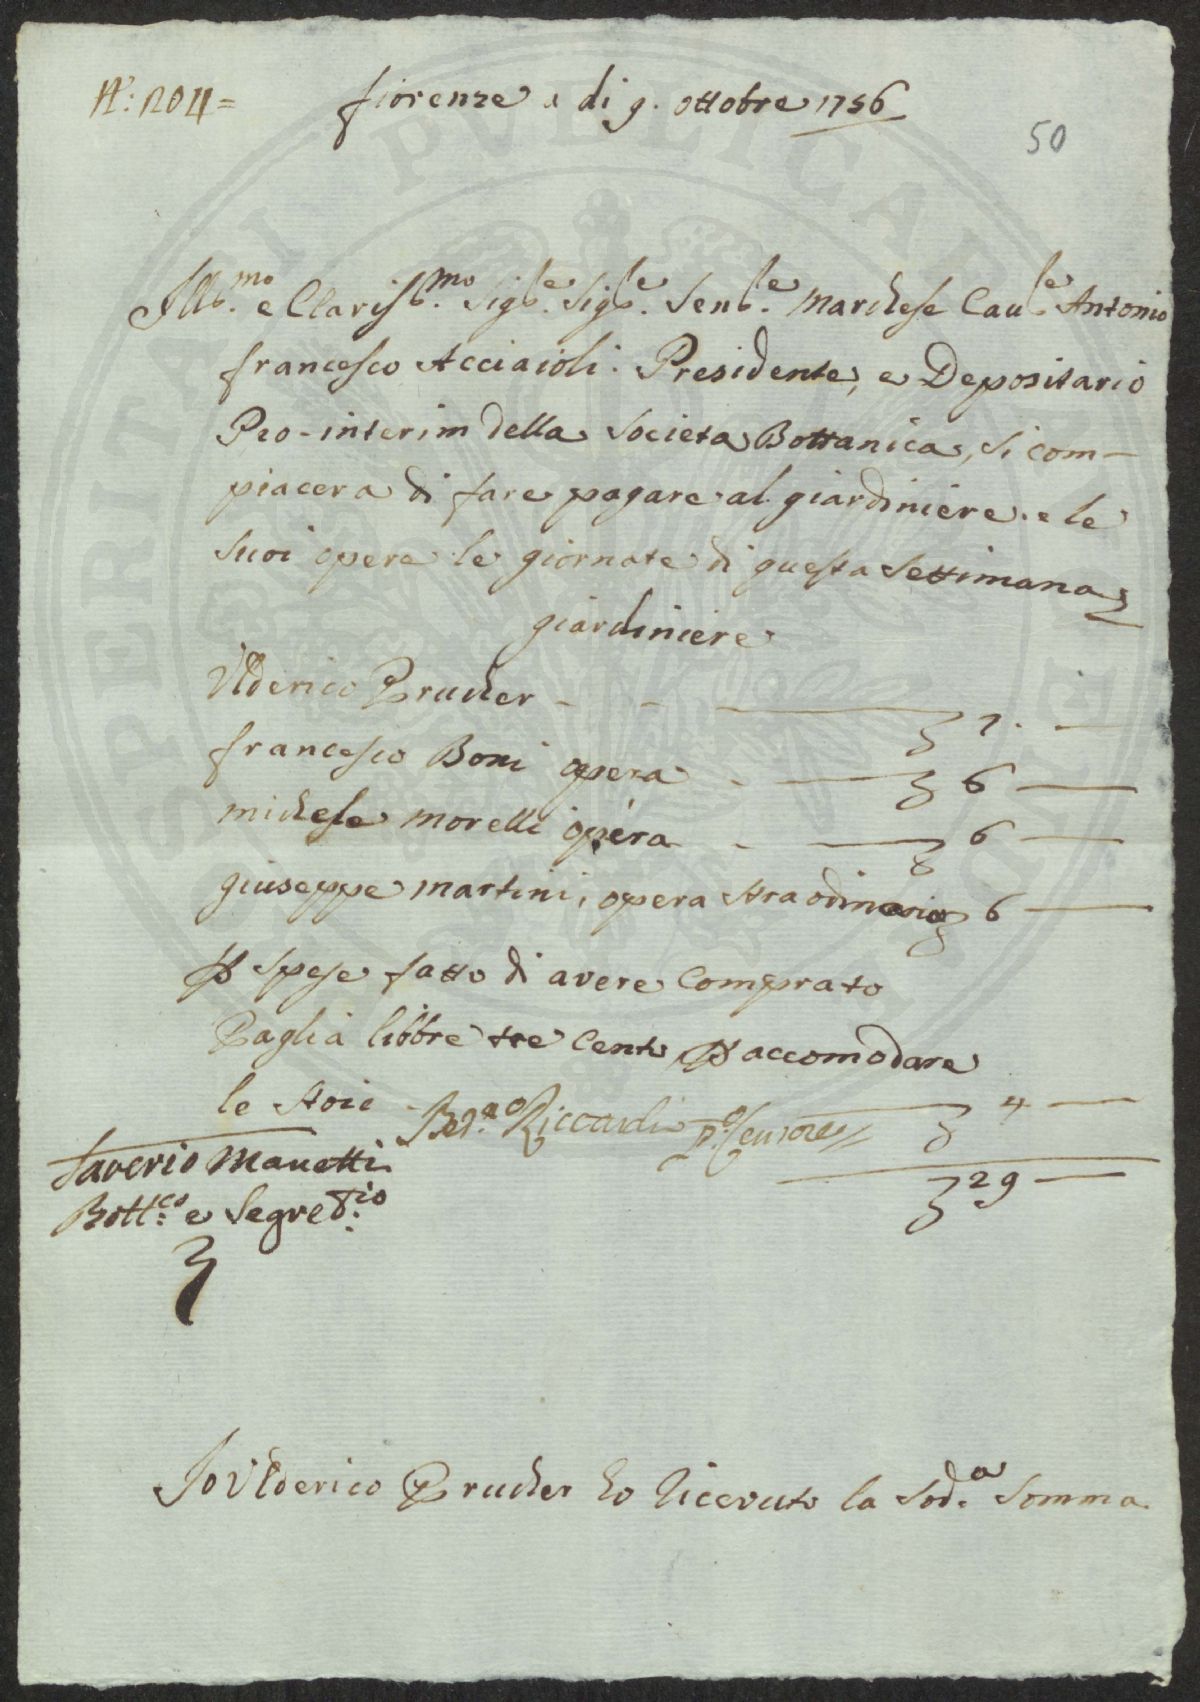 N.º: 204 = fiorenze a di 9. ottobre 1756
50
Ill.mo e Claris.mo Sig.re Sig.re Sen.re Marchese Cau.re Antonio
francesco Acciaioli. Presidente, e Depositario
Pro-interim della Societa Bottanica, si com-
piacera di fare pagare al giardiniere e le
suoi opere le giornate di questa Settimana
giardiniere
Ulderico Prucher - - 7. -
francesco Boni opera - 6 -
michele morelli opera - 6 -
giuseppe martini, opera straodinario 6 -
P spese fatto di avere Comprato
Paglia libbre tre Cento P accomodare
le stoie 4 -
Bed.to Riccardi P.o Censore
29 -
Saverio Manetti
Bott.co e Segret.rio
Io Ulderico Prucher ho ricevuto la Sod.a Somma